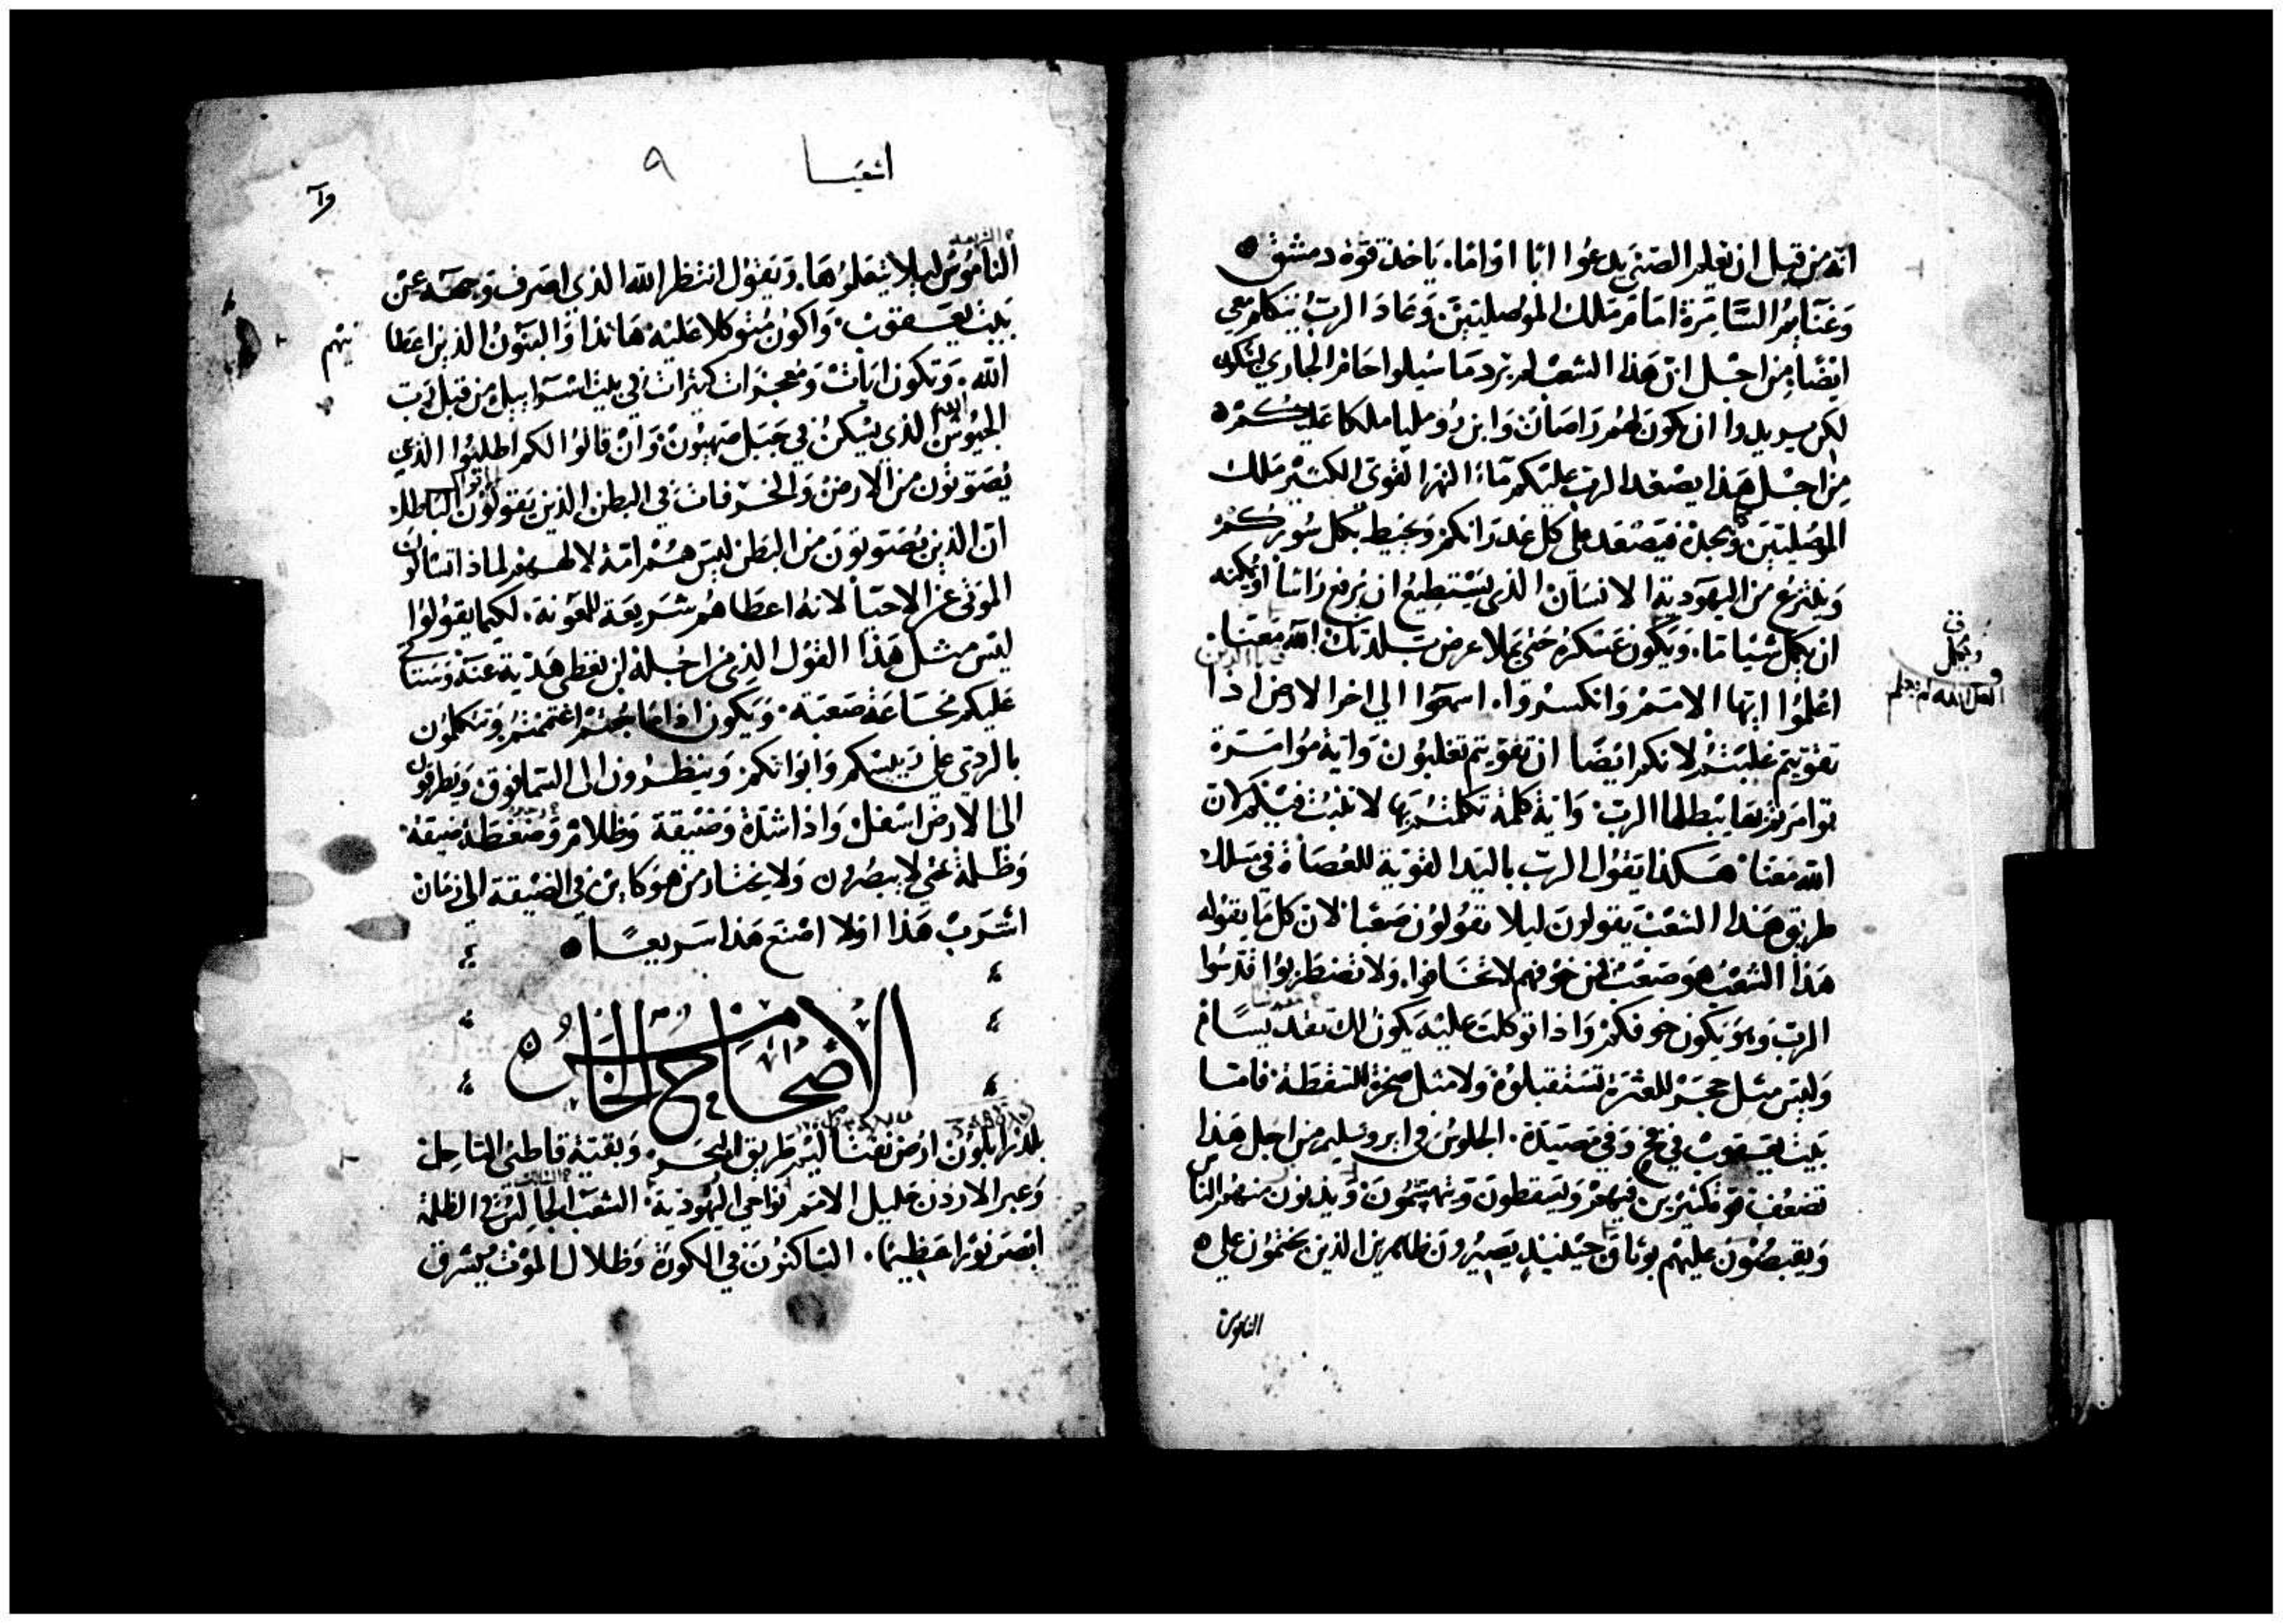 انه من قبل ان يعلم الصبي يدعوا ابا او اما. ياخذ قوة دمشق
وغنايم السامرة امام ملك الموصليين. وعاد الرب يتكلم معي
ايضا. من اجل ان هذا الشعب لم يرد ما سيلوا حام الجاري بسكون
لكن يريدوا ان يكون لهم راصان وابن روميليا ملكا عليكم
من اجل هذا يصعد الرب عليكم ماء النهر القوي الكثير ملك
الموصليين ومجده فيصعد على كل غدرانكم ويحيط بكل سوركم
وينتزع من اليهودية الانسان الذي يستطيع ان يرفع راسا او يمكنه
ان يكمل شيا ما. ويكون عسكره حتى يملا عرض بلدتك الله معنا.
اعلموا ايها الامم وانكسروا. اسمعوا الي اخر الارض اذا
تقويتم غلبتم لانكم ايضا ان تقويتم تغلبون واية موامرة
توامرتم بها يبطلها الرب واية كلمة تكلمتم بها لا تثبت فيكم لان
الله معنا هكذا يقول الرب باليد القوية للعصاة في مسلك
طريق هذا الشعب يقولون ليلا تقولون صعبا لان كل ما يقوله
هذا الشعب هو صعب من خوفهم لا تخافوا. ولا تضطربوا قدسوا
الرب وهو يكون خوفكم واذا توكلت عليه يكون لك تقديسا
وليس مثل حجر للعثرة تستقبلوه ولا مثل صخرة للسقطة فاما
بيت يعقوب في فخ وفي مصيدة. الجلوس في ايروسليم من اجل هذا
تضعف قوة كثيرين فيهم ويسقطون ويتهشمون ويدنون منهم الناس
ويقبضون عليهم بوثاق حينيذ يصيرون ظاهرين الذين يختمون علي
الناموس
اشعيا ٩
الناموس ليلا يتعلموها. ويقول انتظر الله الذي اصرف وجهه عن
بيت يعقوب. واكون متوكلا عليه هانذا والبنون الذين اعطا
الله. وتكون ايات ومعجزات كثيرات في بيت اسراييل من قبل رب
الجيوش الذي يسكن في جبل صهيون وان قالوا لكم اطلبوا الذي
يصوتون من الارض والخرفات في البطن الذين يقولون الباطل
ان الذين يصوتون من البطن ليس هم امة لالههم لماذا تسالون
الموتى عن الاحيا لانه اعطاهم شريعة للمعونة. لكيما يقولوا
ليس مثل هذا القول الذي من اجله لن نعطي هدية عنه وستاتي
عليكم مجاعة صعبة. ويكون اذا ما جعتم اغتممتم وتتكلمون
بالردي على رييسكم وابواتكم وينظرون الى السما فوق ويطرقون
الى الارض اسفل واذا شدة وضيقة وظلام وضغطة ضيقة
وظلمة حتي لا يبصرون ولا يحتار من هو كاين في الضيقة الي زمان
اشرب هذا اولا اصنع هذا سريعا
الاصحاح الخامس
بلد زابلون ارض نفتاليم طريق البحر. وبقية قاطني الساحل
وعبر الاردن جليل الامم نواحي اليهودية. الشعب الجالس في الظلمة
ابصر نورا عظيما. الساكنون في الكورة وظلال الموت يشرق